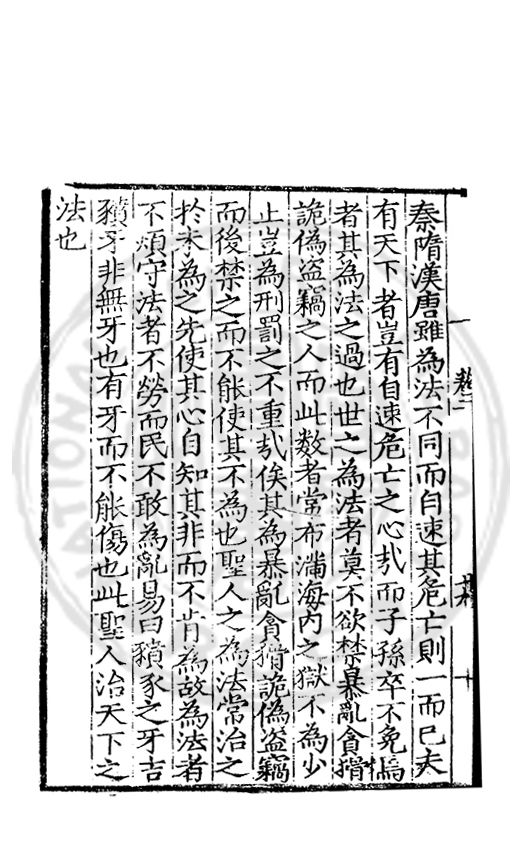 秦隋漢唐雖為法不同而自速其危亡則一而已夫
有天下者豈有自速危亡之心㢤而子孫卒不免焉
者其為法之過也世之為法者莫不欲禁暴亂貪猾
詭偽盗竊之人而此数者常布滿海内之獄不為少
止豈為刑罰之不重㢤俟其為暴亂貪猾詭偽盗竊
而後禁之而不能使其不為也聖人之為法常治之
扵未為之先使其心自知其非而不肯為故為法者
不煩守法者不勞而民不敢為亂易曰豶豕之牙吉
豶牙非無牙也有牙而不能傷也此聖人治天下之
法也
卷二
十